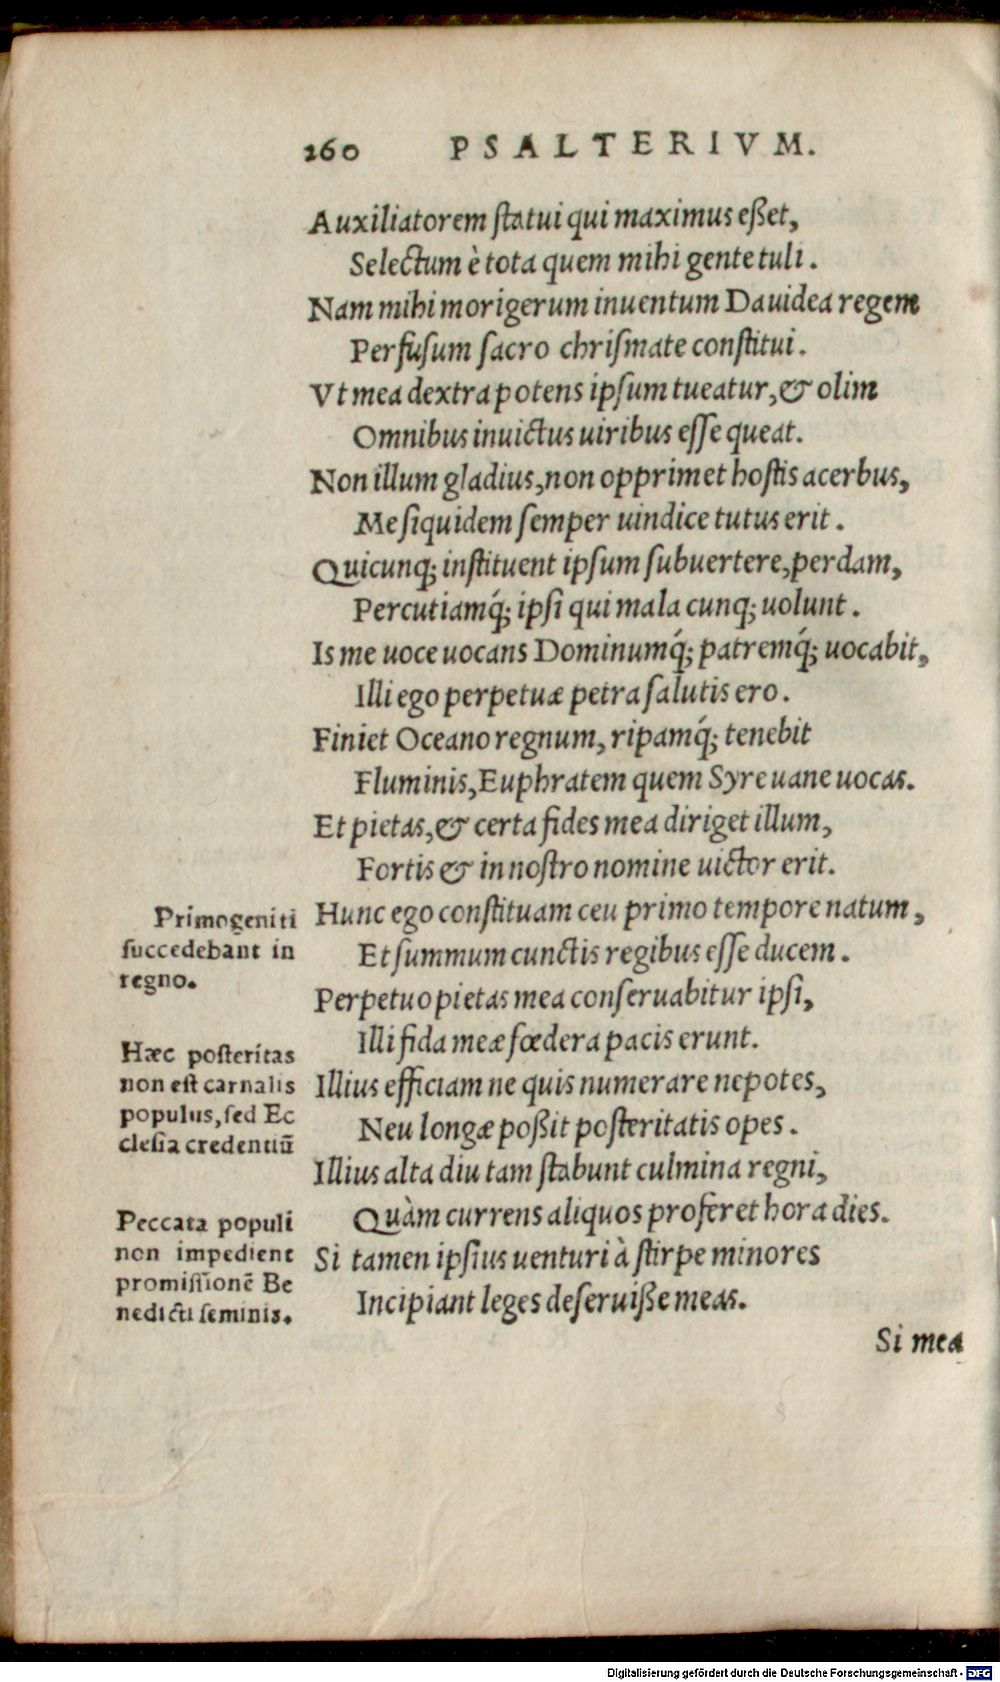 260 PSALTERIVM.
Auxiliatorem statui qui maximus eßet,
Selectum è tota quem mihi gente tuli.
Nam mihi morigerum inuentum Dauidea regem
Perfusum sacro chrismate constitui.
Vt mea dextra potens ipsum tueatur, & olim
Omnibus inuictus uiribus esse queat.
Non illum gladius, non opprimet hostis acerbus,
Me siquidem semper uindice tutus erit.
Quicunq; instituent ipsum subuertere, perdam,
Percutiamq́; ipsi qui mala cunq; uolunt.
Is me uoce uocans Dominumq́; patremq́; uocabit,
Illi ego perpetuæ petra salutis ero.
Finiet Oceano regnum, ripamq́; tenebit
Fluminis, Euphratem quem Syre uane uocas.
Et pietas, & certa fides mea diriget illum,
Fortis & in nostro nomine uictor erit.
Hunc ego constituam ceu primo tempore natum,
Et summum cunctis regibus esse ducem.
Perpetuo pietas mea conseruabitur ipsi,
Illi fida meæ fœdera pacis erunt.
Illius efficiam ne quis numerare nepotes,
Neu longæ poßit posteritatis opes.
Illius alta diu tam stabunt culmina regni,
Quàm currens aliquos proferet hora dies.
Si tamen ipsius uenturi à stirpe minores
Incipiant leges deseruiße meas.
Si mea
Primogeniti
succedebant in
regno.
Hæc posteritas
non est carnalis
populus, sed Ec
clesia credentiū
Peccata populi
non impedient
promissionē Be
nedicti seminis.
Digitalisierung gefördert durch die Deutsche Forschungsgemeinschaft - DFG